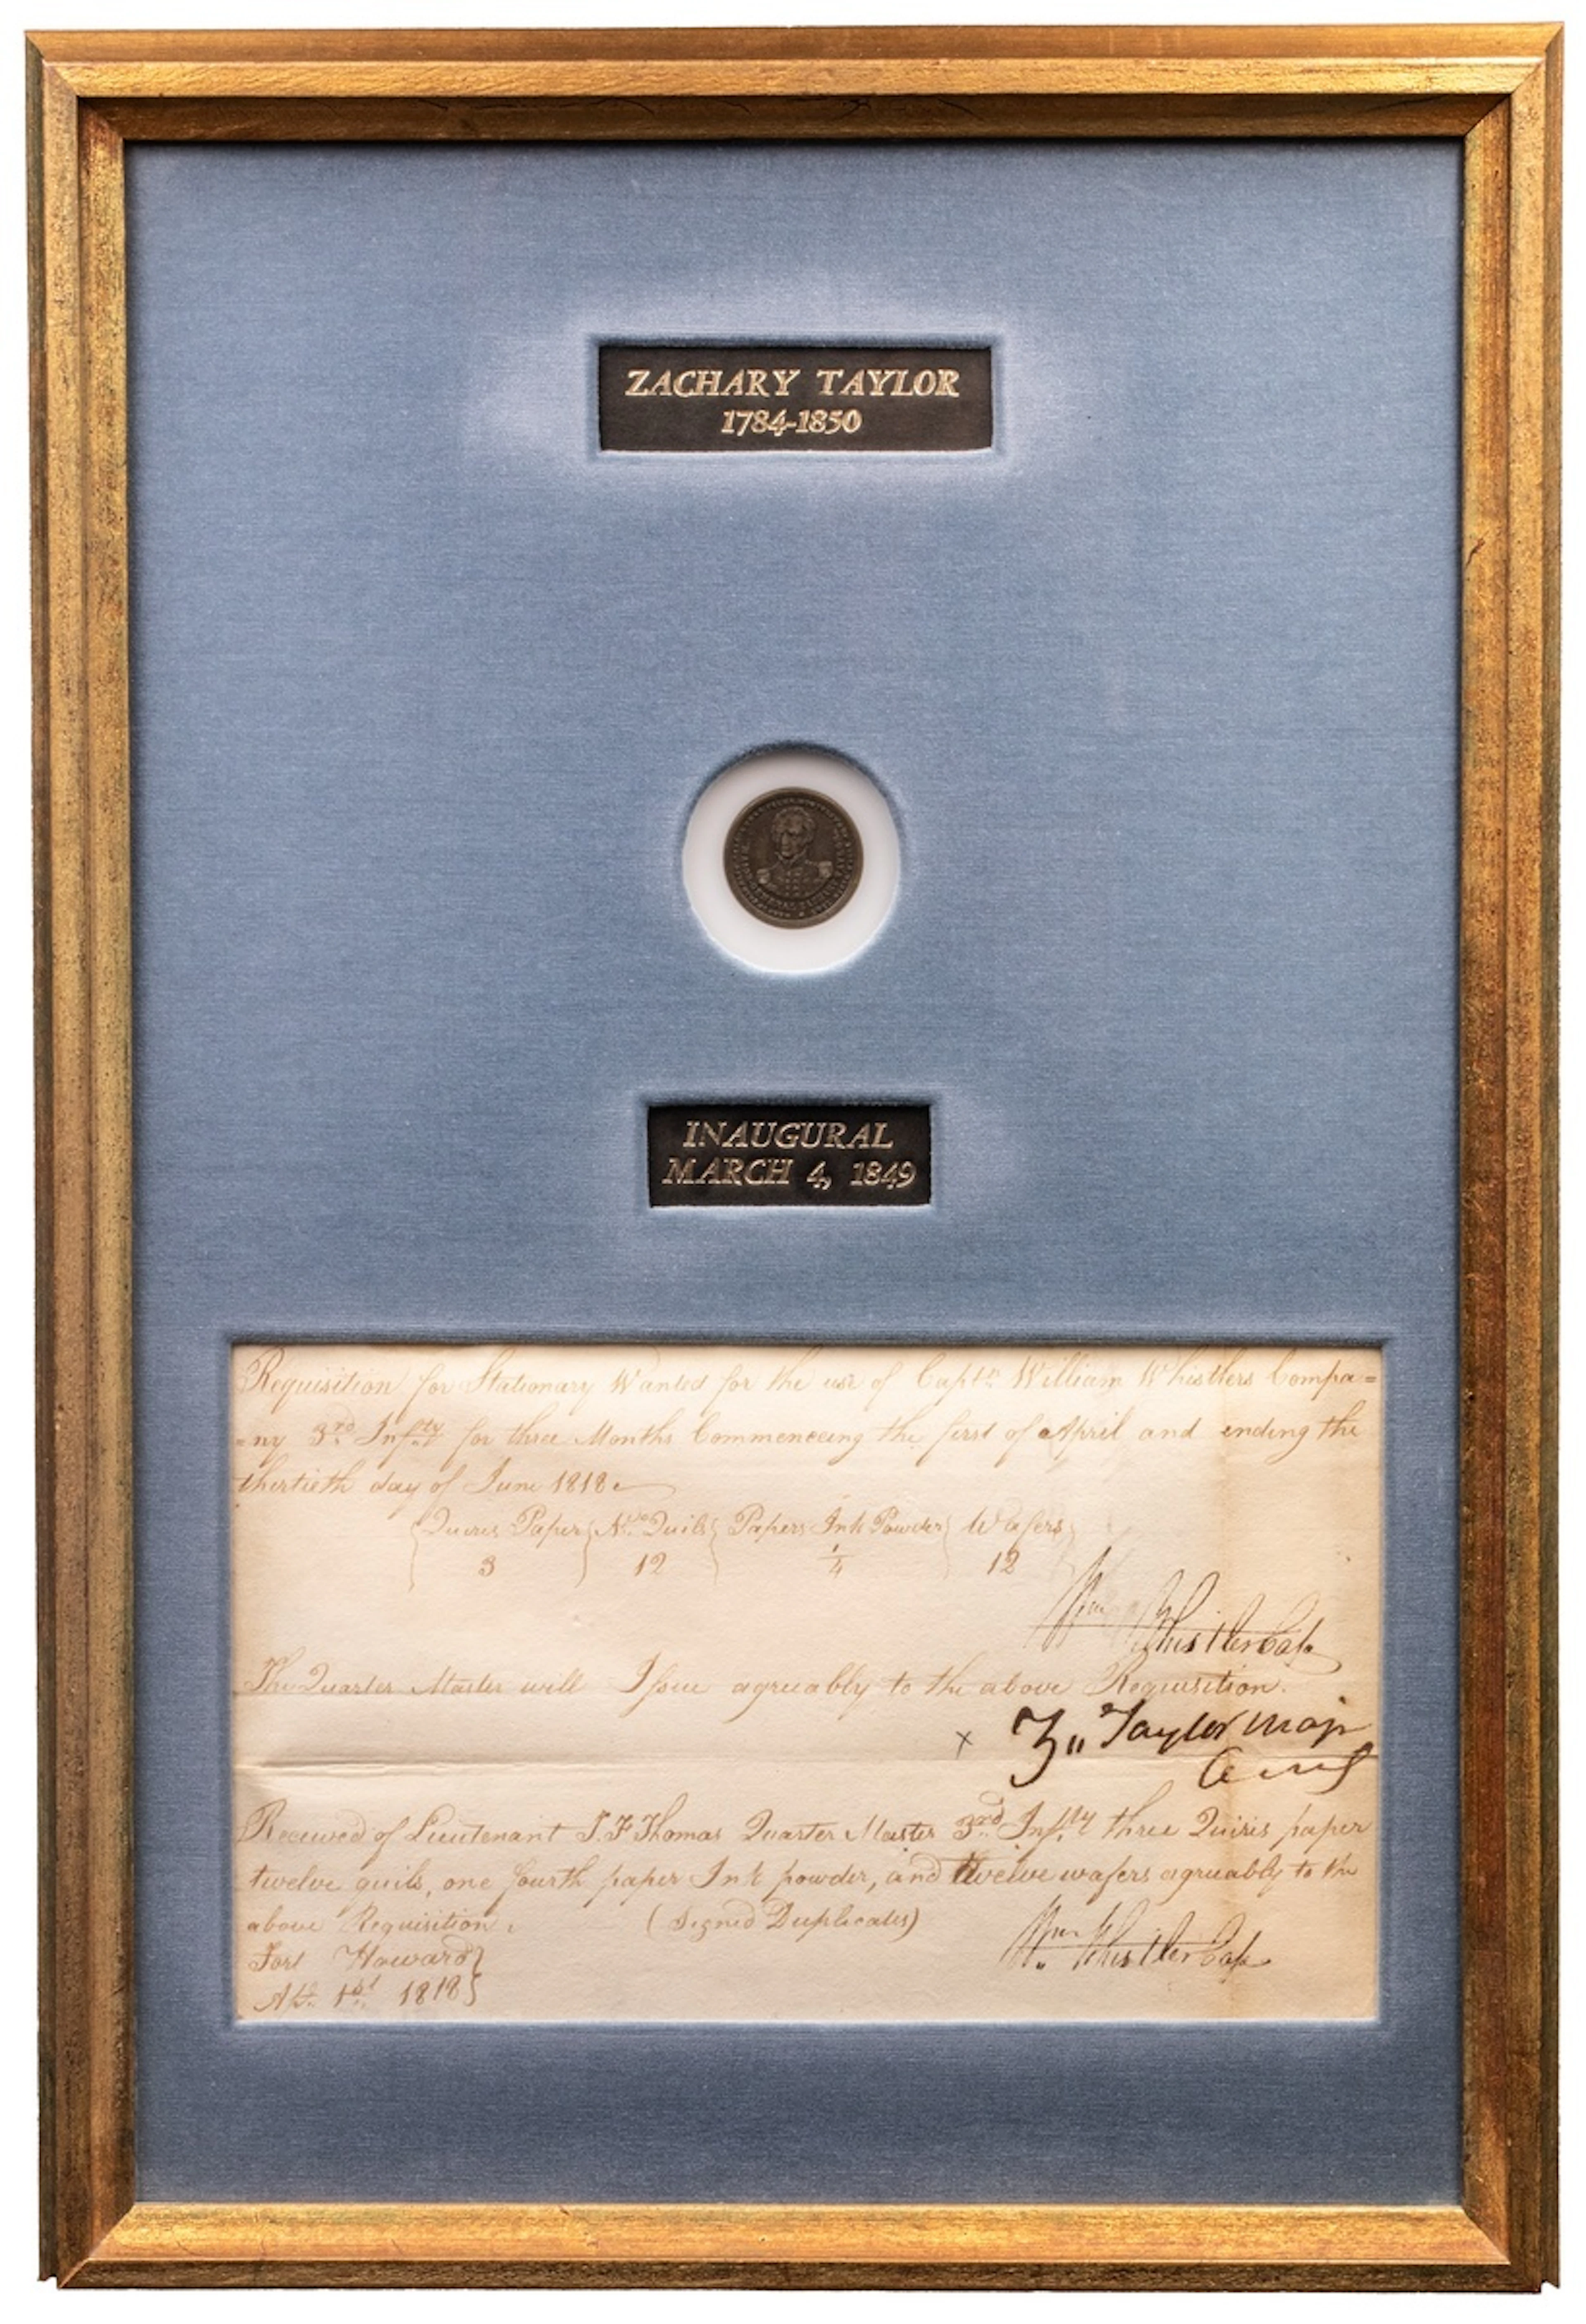 ZACHARY TAYLOR
1784-1850
INAUGURAL
MARCH 4, 1849
Requisition for Stationary Wanted for the use of Captn William Whistlers Compa=
=ny 3rd Infty for three Months Commenceing the first of April and ending the
thertieth day of June 1818
Quires Paper No Quils Papers Ink Powder Wafers
3 12 1/4 12
Wm Whistler Capt
The Quarter Master will Issue agreuably to the above Requisition.
x Z" Taylor Maj
Received of Lieutenant J. F Thomas Quarter Master 3rd Infty three Quiris paper
twelve quils, one fourth paper Ink powder, and twelve wafers agreuably to the
above Requisition. (Signed Duplicates)
Wm Whistler Capt
Fort Howard
Apl. 1st 1818